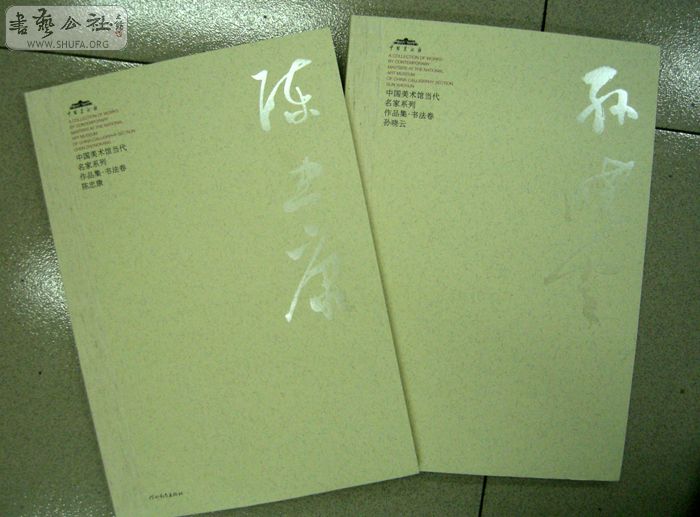 書藝公社
WWW.SHUFA.ORG
中国美术馆
A COLLECTION OF WORKS
BY CONTEMPORARY
MASTERS AT THE NATIONAL
ART MUSEUM
OF CHINA CALLIGRAPHY SECTION
CHEN ZHONGKANG
中国美术馆当代
名家系列
作品集·书法卷
陈忠康
陈忠康
河北教育出版社
中国美术馆
A COLLECTION OF WORKS
BY CONTEMPORARY
MASTERS AT THE NATIONAL
ART MUSEUM
OF CHINA CALLIGRAPHY SECTION
SUN XIAOYUN
中国美术馆当代
名家系列
作品集·书法卷
孙晓云
孙晓云